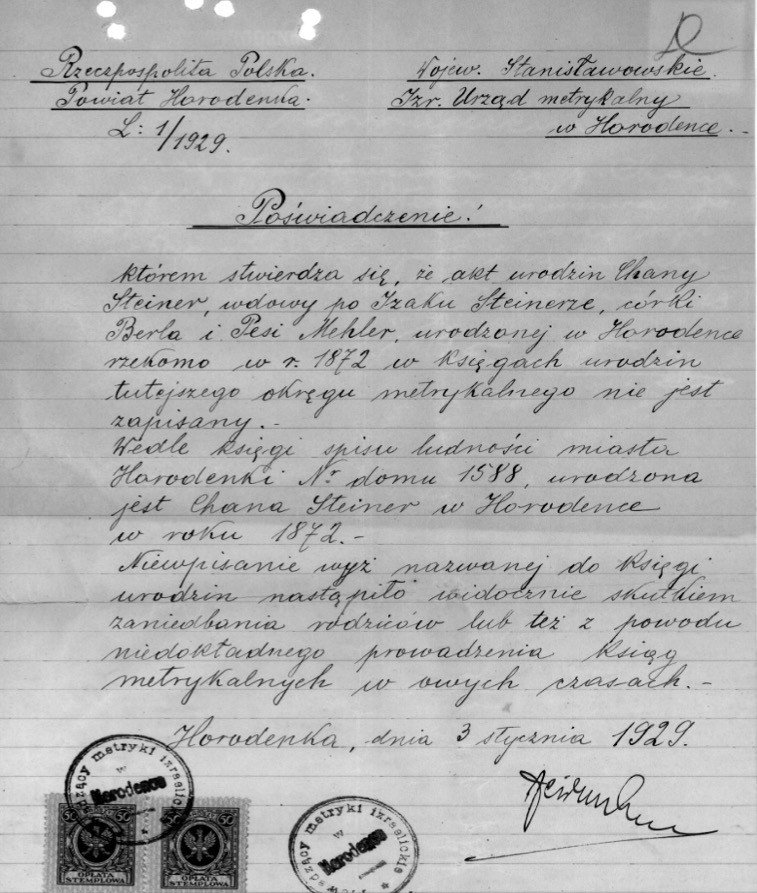 Rzeczpospolita Polska.
Powiat Horodenka.
L: 1/1929.
Wojew. Stanisławowskie.
Izr. Urząd metrykalny
w Horodence.-
Poświadczenie!
którem stwierdza się, że akt urodzin Chany
Steiner, wdowy po Izaku Steinerze, córki
Berla i Pesi Mehler, urodzonej w Horodence
rzekomo w r. 1872 w księgach urodzin
tutejszego okręgu metrykalnego nie jest
zapisany.-
Wedle księgi spisu ludności miasta
Horodenki Nr domu 1588, urodzona
jest Chana Steiner w Horodence
w roku 1872.-
Niewpisanie wyż nazwanej do księgi
urodzin nastąpiło widocznie skutkiem
zaniedbania rodziców lub też z powodu
niedokładnego prowadzenia ksiąg
metrykalnych w owych czasach.-
Horodenka, dnia 3 stycznia 1929.
metryki izraelickie
w
Horodence
50 50
OPŁATA STEMPLOWA
50 50
OPŁATA STEMPLOWA
metryki izraelickie
w
Horodence